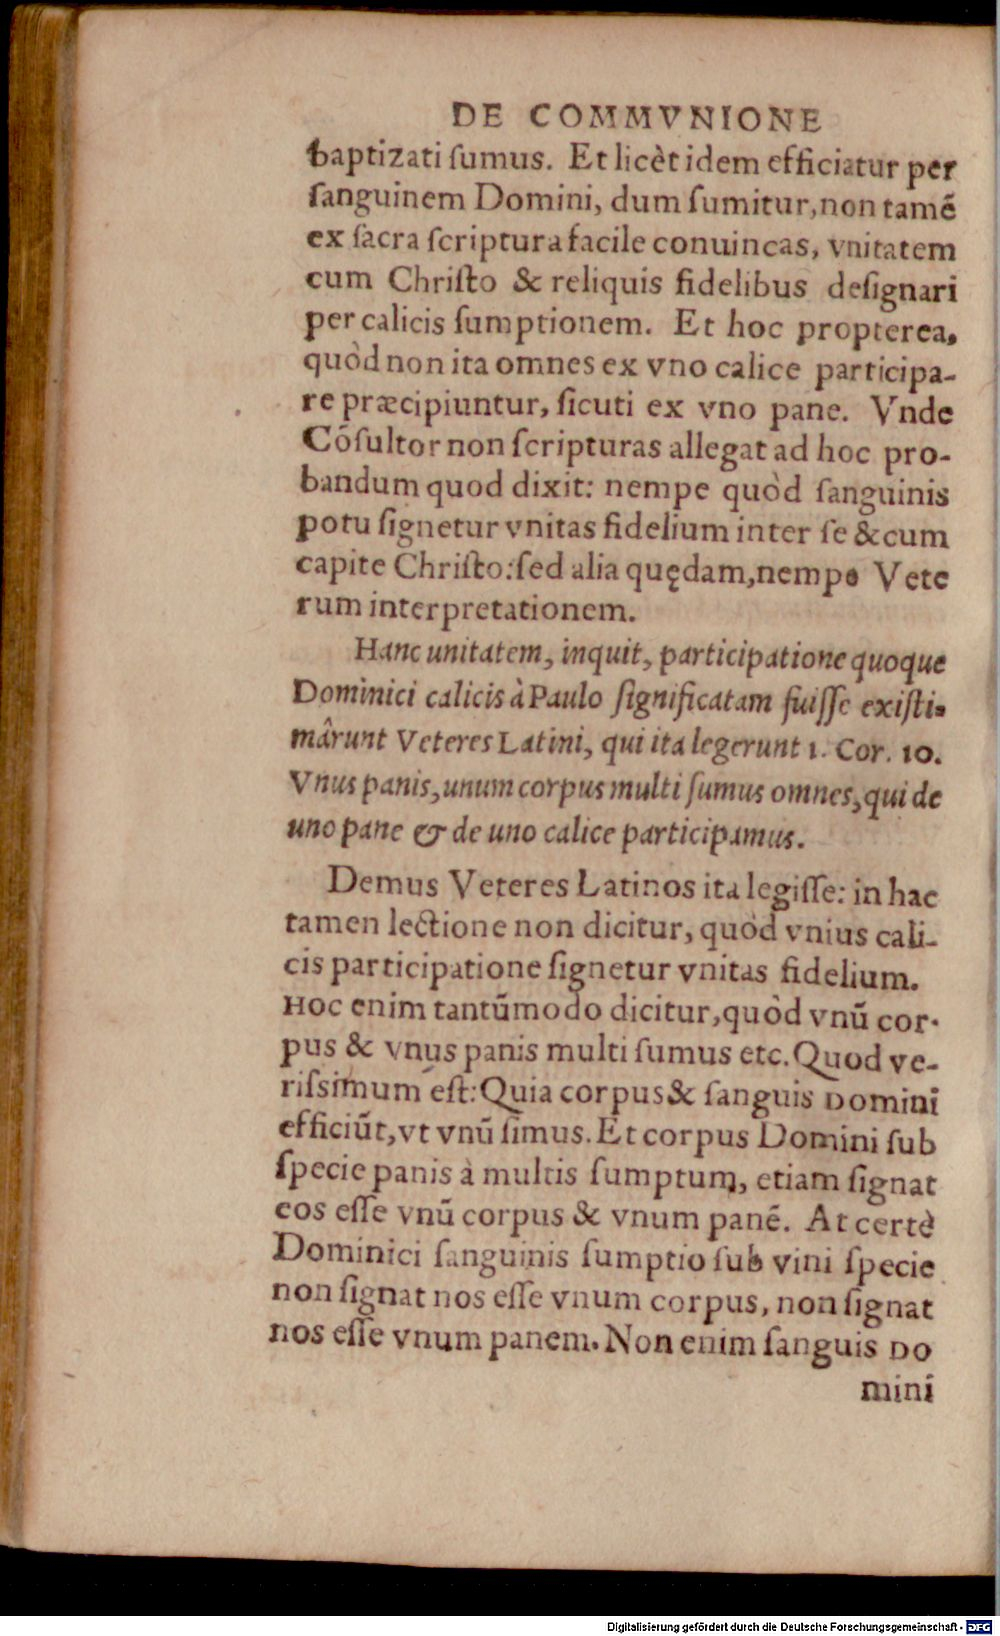 DE COMMVNIONE
baptizati ſumus. Et licèt idem efficiatur per
ſanguinem Domini, dum ſumitur, non tamē
ex ſacra ſcriptura facile conuincas, vnitatem
cum Chriſto & reliquis fidelibus deſignari
per calicis ſumptionem. Et hoc propterea,
quòd non ita omnes ex vno calice participa-
re præcipiuntur, ſicuti ex vno pane. Vnde
Cōſultor non ſcripturas allegat ad hoc pro-
bandum quod dixit: nempe quòd ſanguinis
potu ſignetur vnitas fidelium inter ſe & cum
capite Chriſto: ſed alia quędam, nempe Vete
rum interpretationem.
Hanc unitatem, inquit, participatione quoque
Dominici calicis à Paulo ſignificatam fuiſſe exiſti-
mârunt Veteres Latini, qui ita legerunt 1. Cor. 10.
Vnus panis, unum corpus multi ſumus omnes, qui de
uno pane & de uno calice participamus.
Demus Veteres Latinos ita legiſſe: in hac
tamen lectione non dicitur, quòd vnius cali-
cis participatione ſignetur vnitas fidelium.
Hoc enim tantūmodo dicitur, quòd vnū cor-
pus & vnus panis multi ſumus etc. Quod ve-
riſsimum eſt: Quia corpus & ſanguis Domini
efficiūt, vt vnū ſimus. Et corpus Domini ſub
ſpecie panis à multis ſumptum, etiam ſignat
eos eſſe vnū corpus & vnum panē. At certè
Dominici ſanguinis ſumptio ſub vini ſpecie
non ſignat nos eſſe vnum corpus, non ſignat
nos eſſe vnum panem. Non enim ſanguis Do
mini
Digitalisierung gefördert durch die Deutsche Forschungsgemeinschaft - DFG